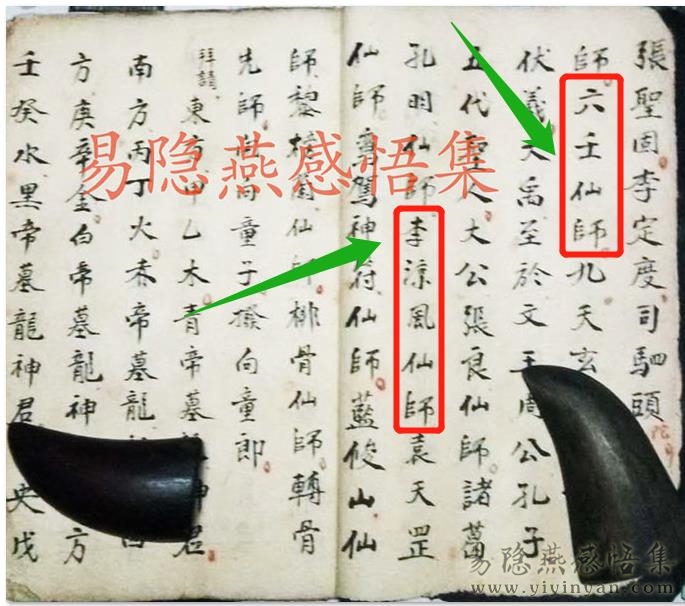 張聖固李定度司馹頭
師六壬仙師九天玄
伏羲大禹至於文王周公孔子
五代聖人太公張良仙師諸葛
孔明仙師李淳風仙師袁天罡
仙師 神符仙師藍俊山仙
師黎 仙師排骨仙師轉骨
先師 童子撥向童郎
拜請東方甲乙木青帝墓 神君
南方丙丁火赤帝墓龍
方庚辛金白帝墓龍神 方
壬癸水黑帝墓龍神君 央戊
易隐燕感悟集
易隐燕感悟集
www.yiyinyan.com